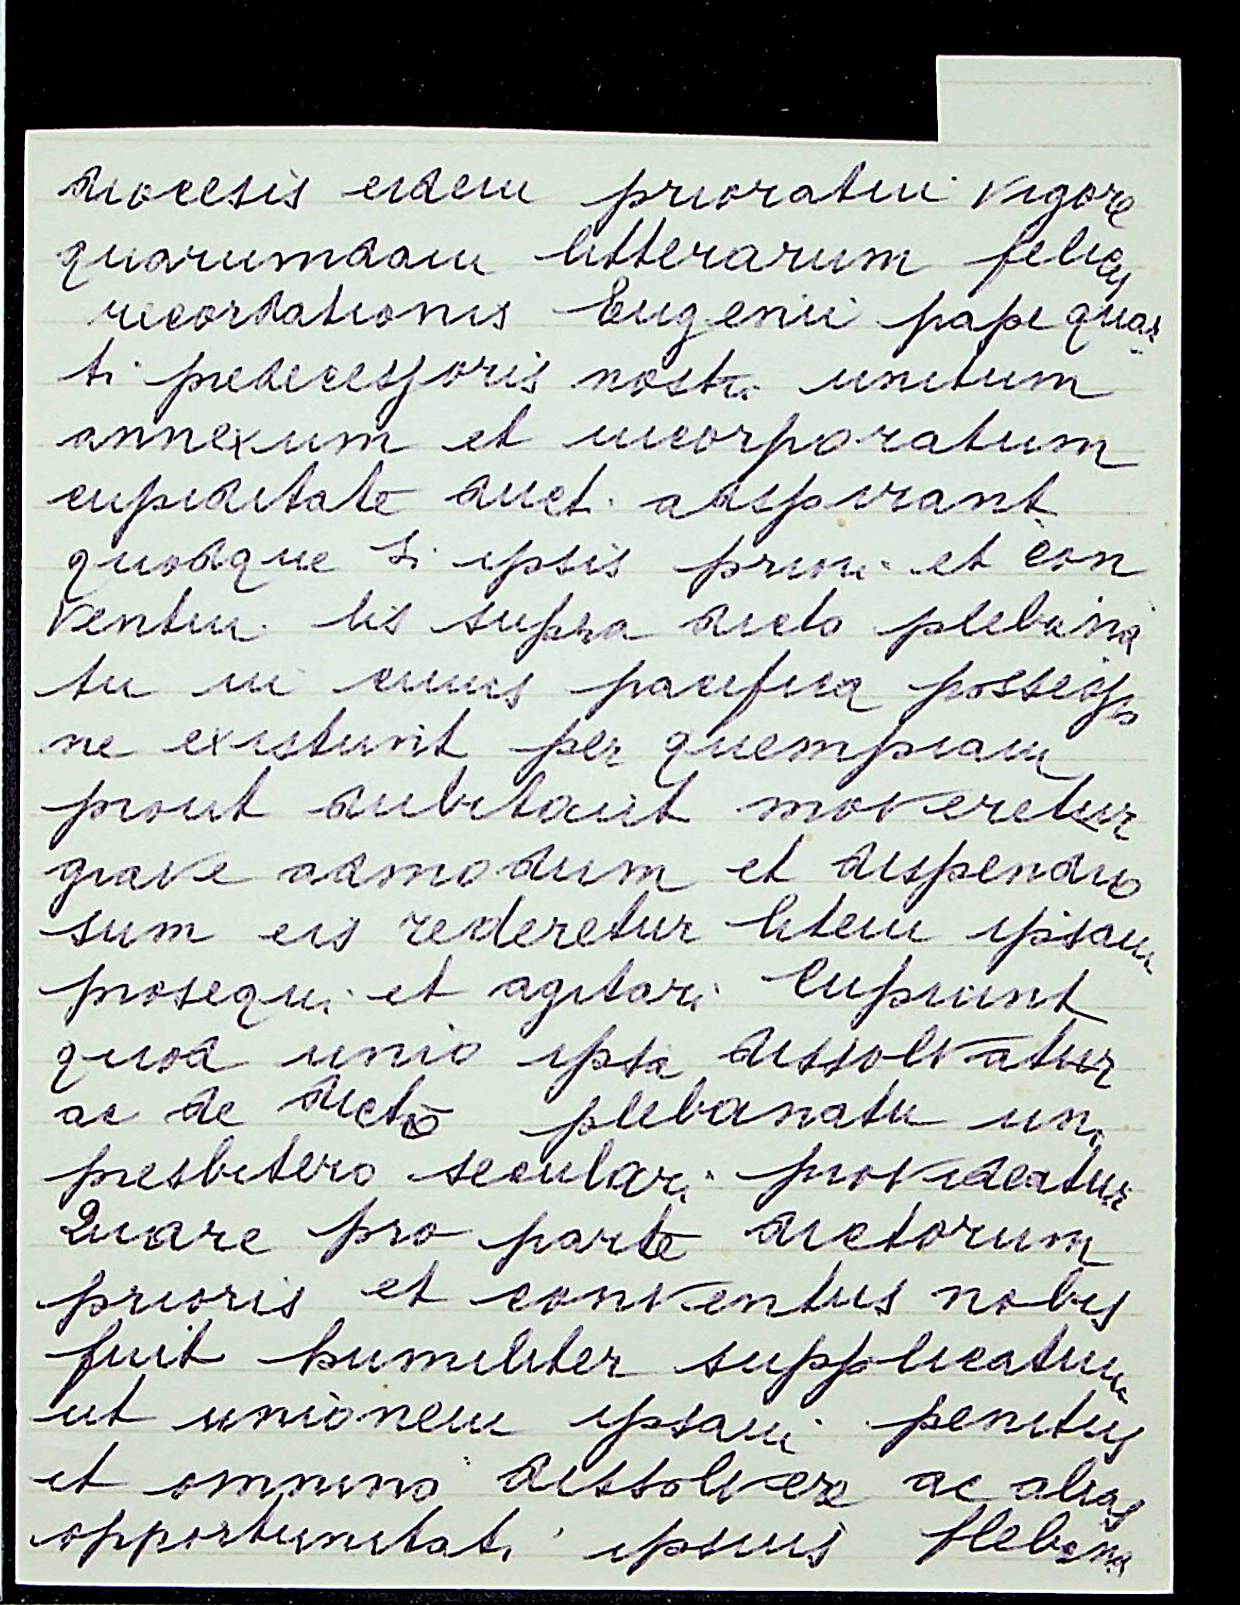 diocesis eidem prioratui vigore
quarumdam litterarum felicis
recordationis Eugenii pape quar
ti predecessoris nostri unitum
annexum et incorporatum
cupiditate duct. adspirant
quodque si ipsis priori et con
ventui lis supra dicto plebana
tu in cuius pacifica possessio
ne existunt per quempiam
prout dubitant moveretur
grave admodum et dispendio
sum eis rederetur litem ipsam
prosequi et agitari Cupiunt
quod unio ipsa dissolvatur
ac de dicto plebanatu uni
presbitero seculari provideatur
Quare pro parte dictorum
prioris et conventus nobis
fuit humiliter supplicatum
ut unionem ipsam penitus
et omnino dissolvere ac alias
opportunitati ipsius plebana